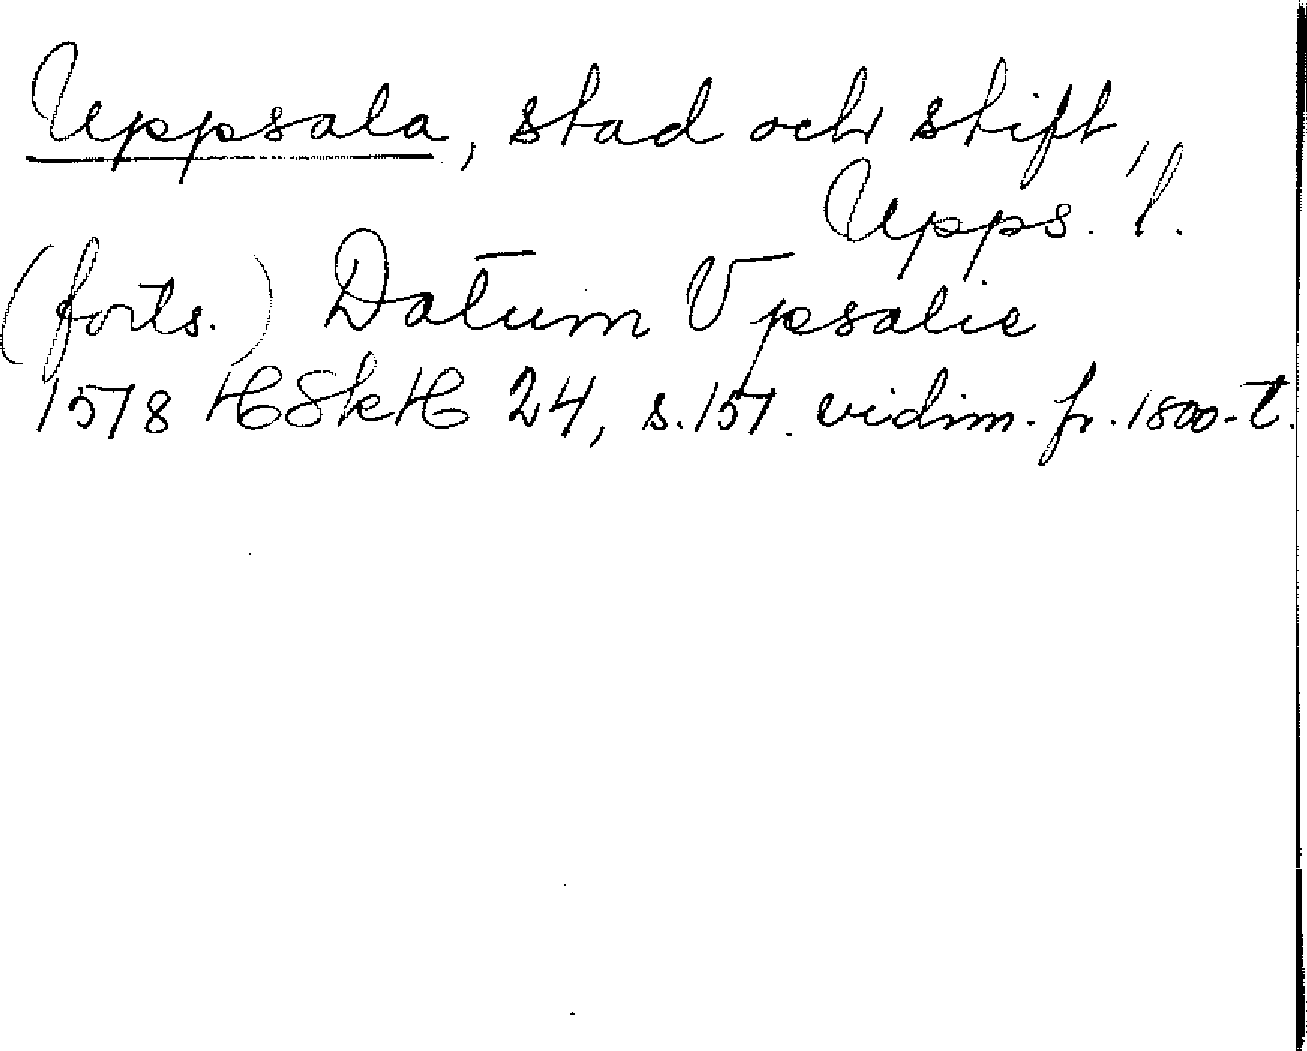 Uppsala, stad och stift,
Upps. l.
(forts.) Datum Vpsalie
1578 HSkH 24, s. 157. vidim. fr. 1800-t.